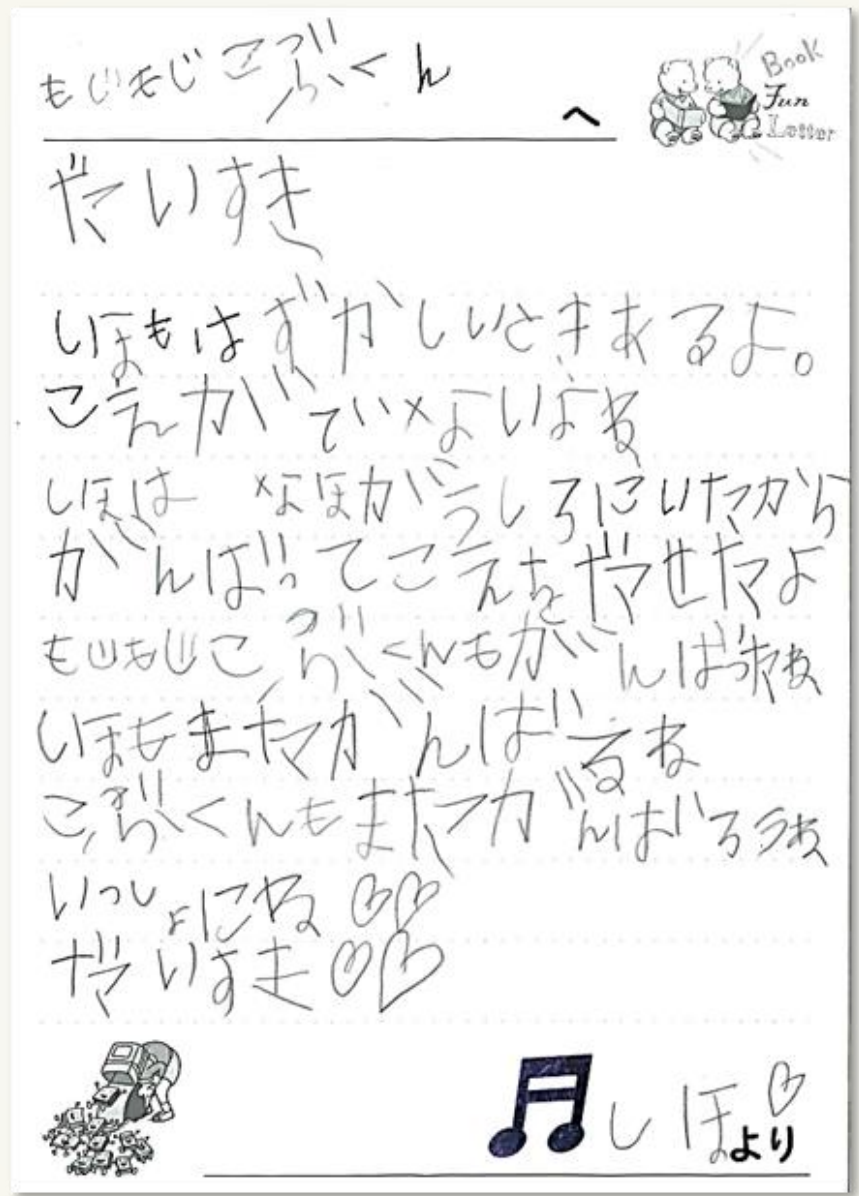 もじもじこぶくん
へ
Book
Fun
Letter
だいすき
しほもはずかしいときあるよ。
こえがでないよね
しほは なほがうしろにいたから
がんばってこえをだせたよ
もじもじこぶくんもがんばったね
しほもまたがんばるね
こぶくんもまたがんばろうね
いっしょにね ♡♡
だいすき ♡♡
♫ しほ♡より